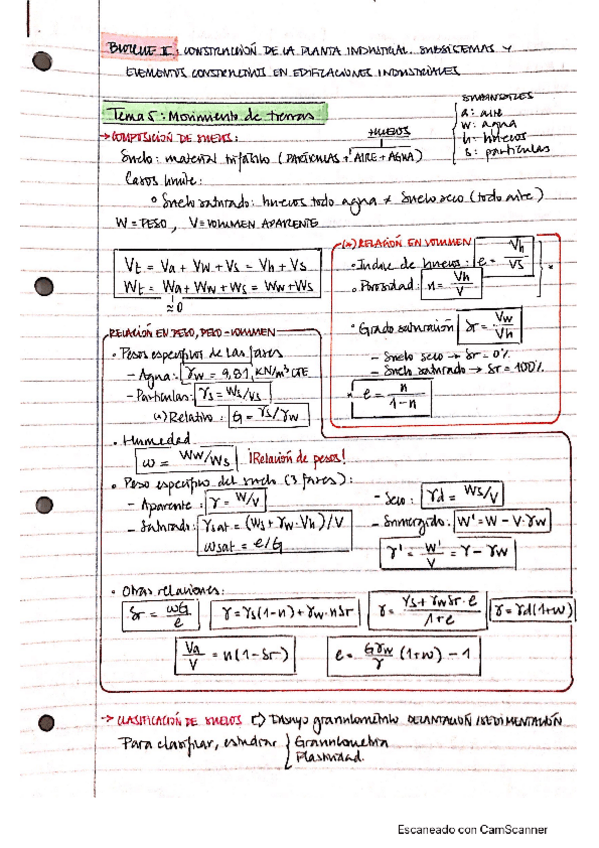 BLOQUE II: CONSTRUCCIÓN DE LA PLANTA INDUSTRIAL. SUBSISTEMAS Y
ELEMENTOS CONSTRUCTIVOS EN EDIFICACIONES INDUSTRIALES
Tema 5: Movimiento de tierras
SUBÍNDICES
a: aire
w: agua
h: huecos
s: partículas
→ COMPOSICIÓN DE SUELOS:
HUECOS
Suelo: material trifásico (PARTÍCULAS + AIRE + AGUA)
Casos límite:
Suelo saturado: huecos todo agua ≠ Suelo seco (todo aire)
W = PESO, V = VOLUMEN APARENTE
Vt = Va + Vw + Vs = Vh + Vs
Wt = Wa + Ww + Ws = Ww + Ws
≈ 0
(*) RELACIÓN EN VOLUMEN
• Índice de huecos: e = Vh/Vs *
• Porosidad: n = Vh/V
• Grado saturación Sr = Vw/Vh
- Suelo seco → Sr = 0%
- Suelo saturado → Sr = 100%
* e = n/(1-n)
RELACIÓN EN PESO, PESO-VOLUMEN
• Pesos específicos de las fases
- Agua: γw = 9,81 KN/m³ CTE
- Partículas: γs = Ws/Vs
(*) Relativo: G = γs/γw
• Humedad
ω = Ww/Ws ¡Relación de pesos!
• Peso específico del suelo (3 fases):
- Aparente: γ = W/V
- Saturado: γsat = (Ws + γw·Vh)/V
ωsat = e/G
- Seco: γd = Ws/V
- Sumergido: W' = W - V·γw
γ' = W'/V = γ - γw
• Otras relaciones:
Sr = ωG/e
γ = γs(1-n) + γw·nSr
γ = (γs + γwSr·e)/(1+e)
γ = γd(1+w)
Va/V = n(1-Sr)
e = Gγw/γ (1+w) - 1
→ CLASIFICACIÓN DE SUELOS Ensayo granulométrico DECANTACIÓN/SEDIMENTACIÓN
Para clasificar, estudiar { Granulometría
Plasticidad.
Escaneado con CamScanner